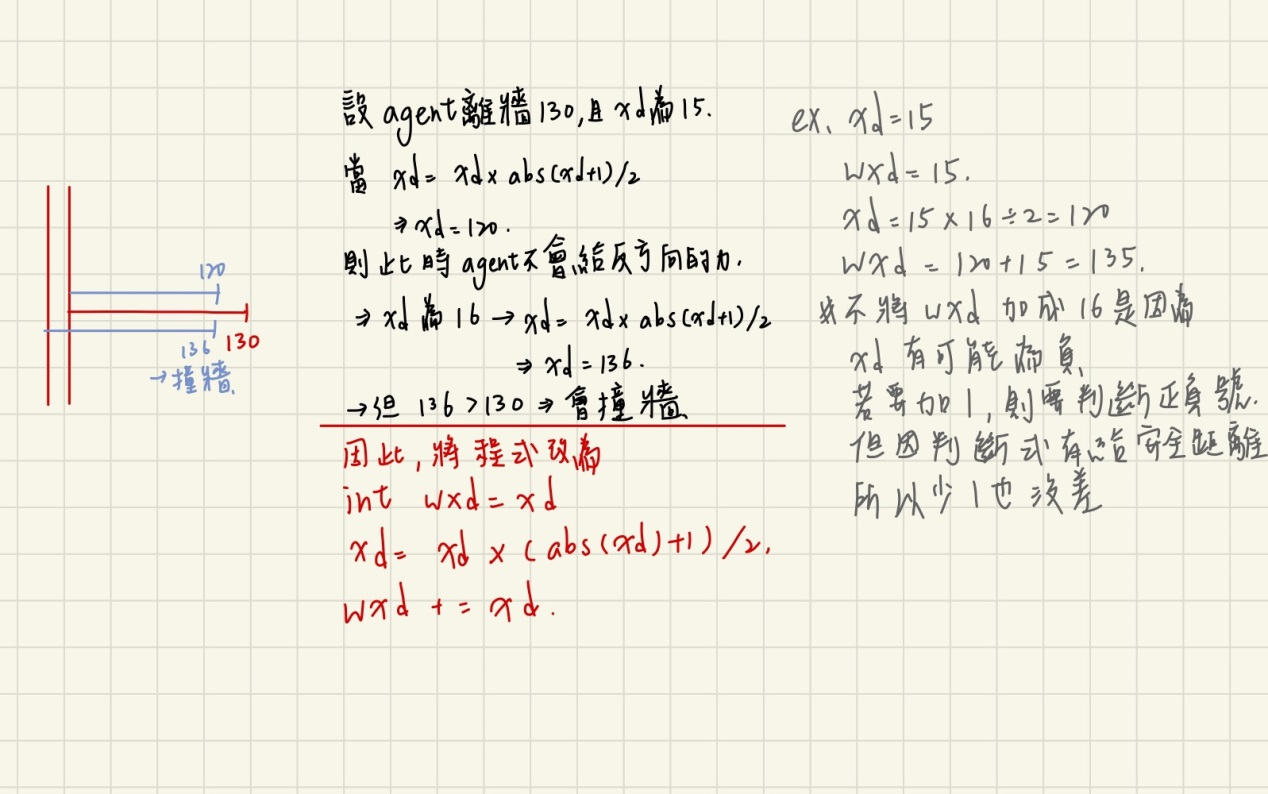 設 agent離牆130,且 xd為15.
當 xd= xd× abs(xd+1)/2
⇒ xd=120.
則此時 agent不會給反方向的力.
⇒ xd 為 16 → xd= xd× abs(xd+1)/2
⇒ xd=136.
→但 136>130 ⇒ 會撞牆
因此,將程式改為
int wxd=xd
xd= xd × (abs(xd)+1)/2.
wxd += xd.
120
130
136
→撞牆
ex. xd=15
wxd=15.
xd=15×16÷2=120
wxd=120+15=135.
*不將 wxd 加成16是因為
xd 有可能為負
若要加1,則要判斷正負號.
但因判斷式有給安全距離
所以少1也沒差